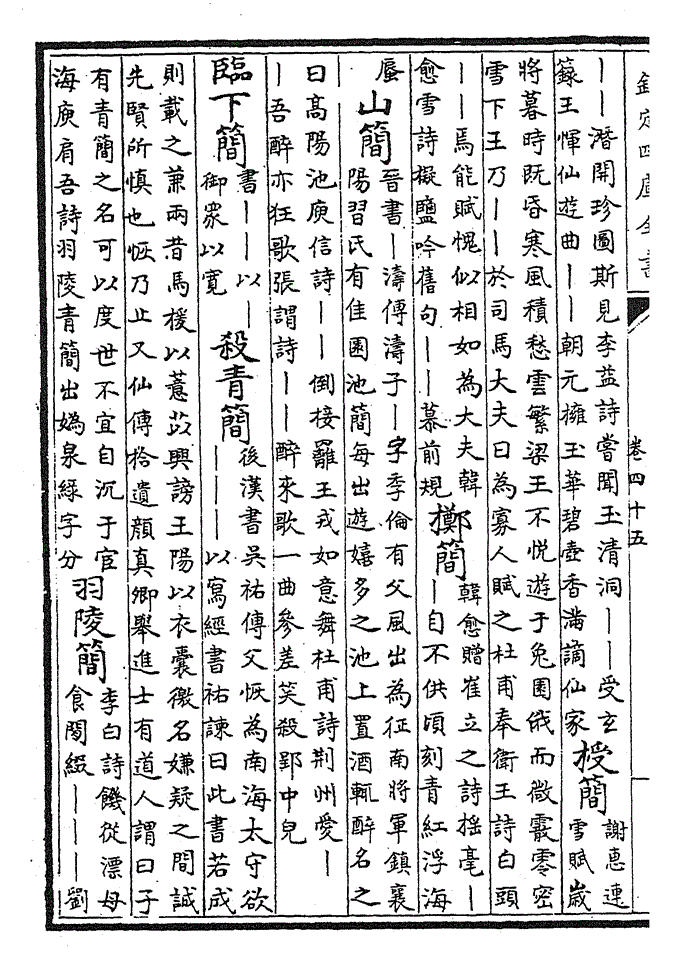 欽定四庫全書 卷四十五
——潛開珍圖斯見李益詩嘗聞玉清洞——受玄
籙王惲仙遊曲——朝元擁玉華碧壺香滿謫仙家
授簡
謝惠連
雪賦歲
將暮時既昏寒風積愁雲繁梁王不悅遊于兔園俄而微霰零密
雪下王乃——於司馬大夫曰為寡人賦之杜甫奉衛王詩白頭
——焉能賦愧似相如為大夫韓
愈雪詩擬鹽吟舊句——慕前規
擲簡
韓愈贈崔立之詩揺毫—
—自不供頃刻青紅浮海
蜃
山簡
晉書—濤傳濤子—字季倫有父風出為征南將軍鎮襄
陽習氏有佳園池簡每出遊嬉多之池上置酒輒醉名之
曰高陽池庾信詩——倒接䍦王戎如意舞杜甫詩荆州愛—
—吾醉亦狂歌張謂詩——醉來歌一曲參差笑殺郢中兒
臨下簡
書——以—
御衆以寛
殺青簡
後漢書吳祐傳父恢為南海太守欲
———以寫經書祐諫曰此書若成
則載之兼兩昔馬援以薏苡興謗王陽以衣囊徼名嫌疑之間誠
先賢所慎也恢乃止又仙傳拾遺顔真卿舉進士有道人謂曰子
有青簡之名可以度世不宜自沉于宦
海庾肩吾詩羽陵青簡出媯泉緑字分
羽陵簡
李白詩饑從漂母
食閒綴———劉